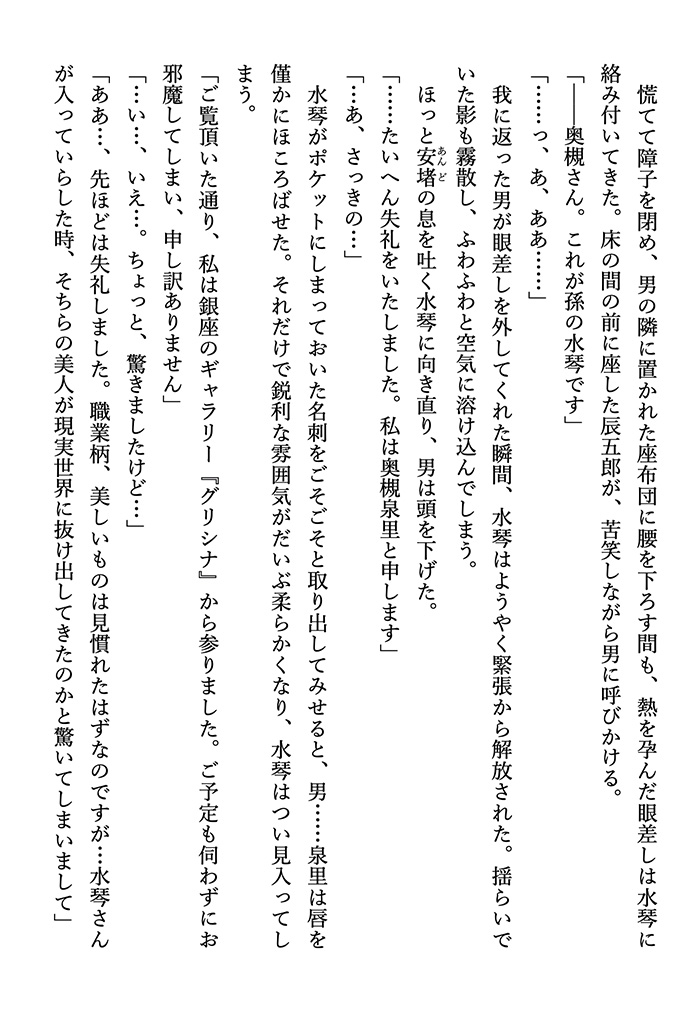 慌てて障子を閉め、男の隣に置かれた座布団に腰を下ろす間も、熱を孕んだ眼差しは水琴に
絡み付いてきた。床の間の前に座した辰五郎が、苦笑しながら男に呼びかける。
「――奥槻さん。これが孫の水琴です」
「……っ、あ、ああ……」
我に返った男が眼差しを外してくれた瞬間、水琴はようやく緊張から解放された。揺らいで
いた影も霧散し、ふわふわと空気に溶け込んでしまう。
ほっと安堵の息を吐く水琴に向き直り、男は頭を下げた。
「……たいへん失礼をいたしました。私は奥槻泉里と申します」
「…あ、さっきの…」
水琴がポケットにしまっておいた名刺をごそごそと取り出してみせると、男……泉里は唇を
僅かにほころばせた。それだけで鋭利な雰囲気がだいぶ柔らかくなり、水琴はつい見入ってし
まう。
「ご覧頂いた通り、私は銀座のギャラリー『グリシナ』から参りました。ご予定も伺わずにお
邪魔してしまい、申し訳ありません」
「…い…、いえ…。ちょっと、驚きましたけど…」
「ああ…、先ほどは失礼しました。職業柄、美しいものは見慣れたはずなのですが…水琴さん
が入っていらした時、そちらの美人が現実世界に抜け出してきたのかと驚いてしまいまして」